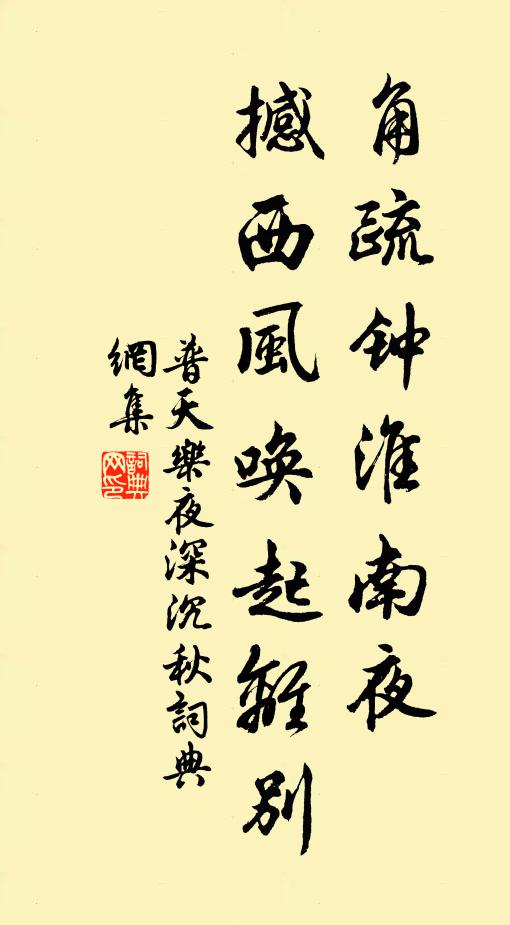 角疏钟淮南夜
撼西風唤起離别
普天樂夜深沉秋詞典
網集
詞典網印